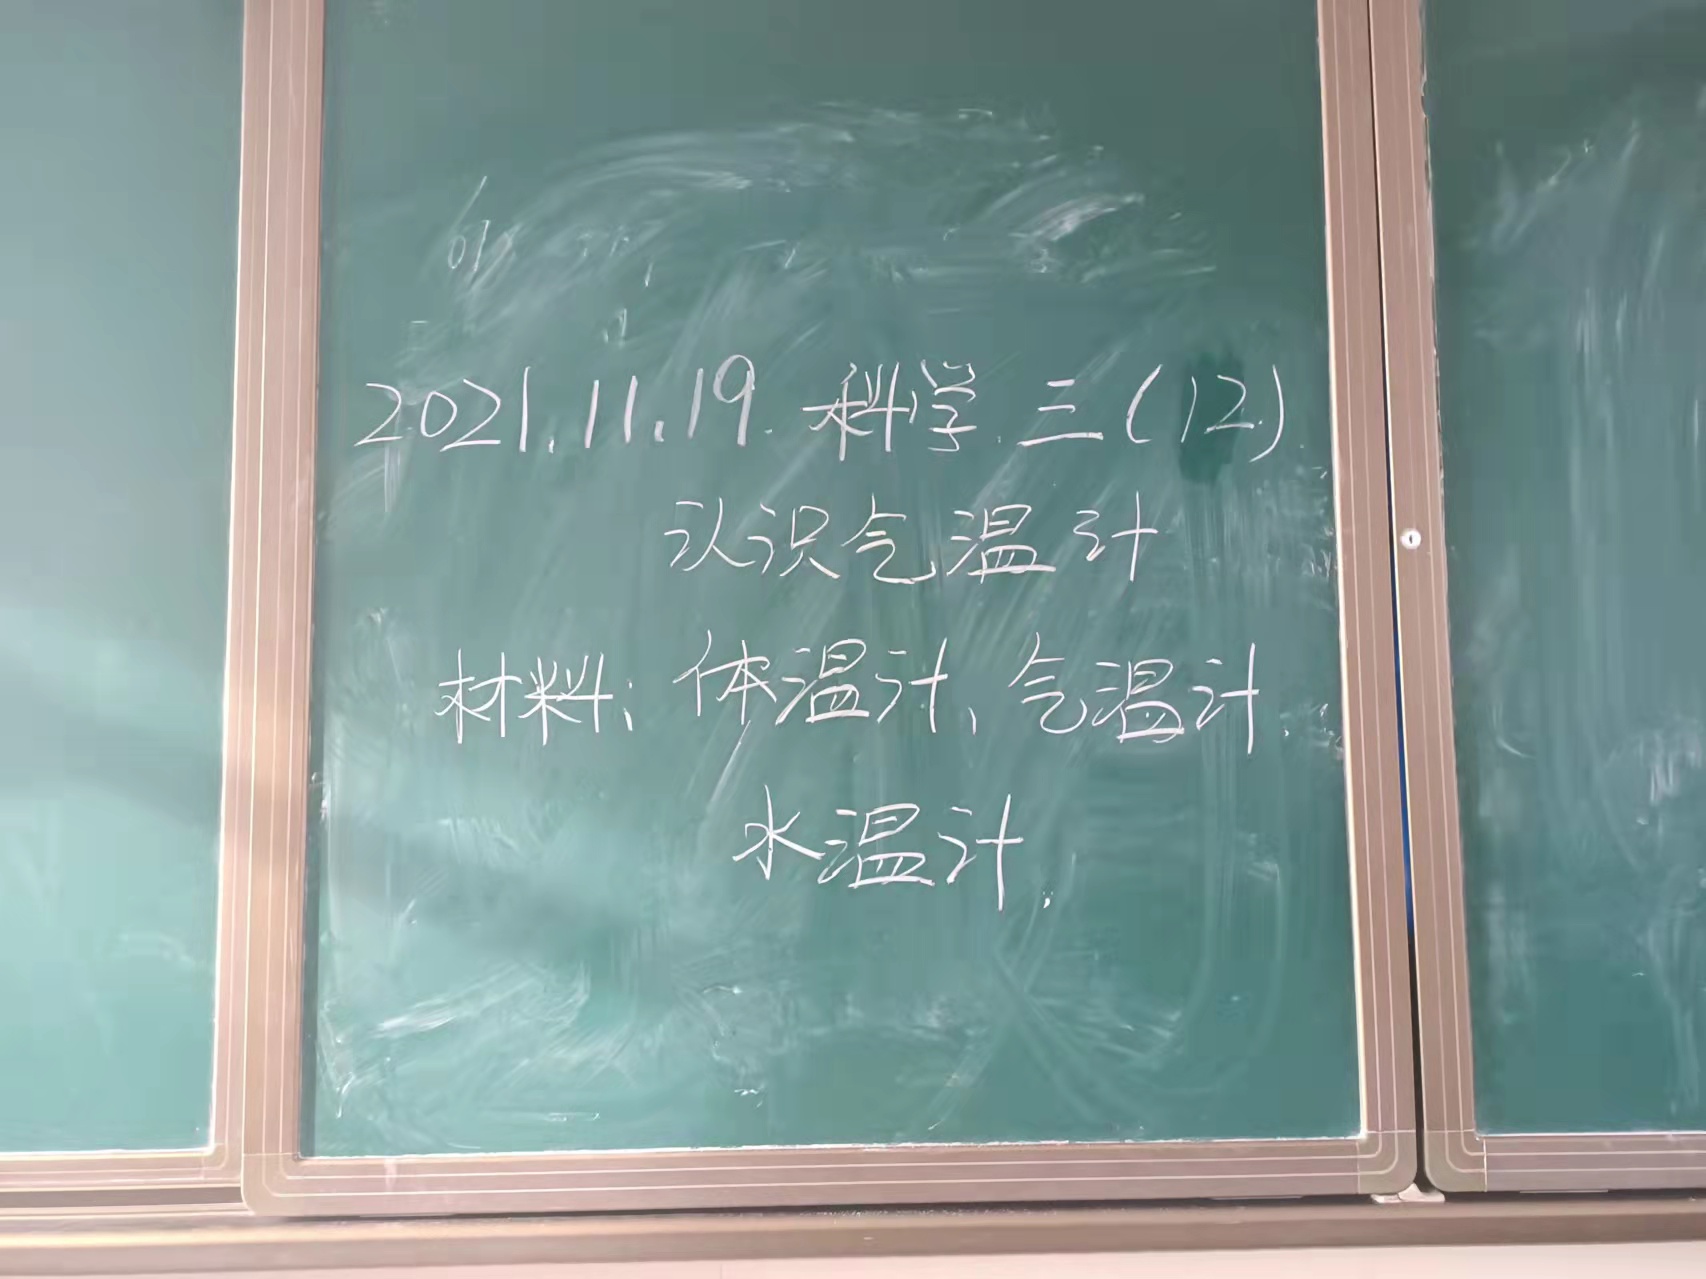 2021.11.19. 科学 三(12)
认识气温计
材料: 体温计、气温计.
水温计.